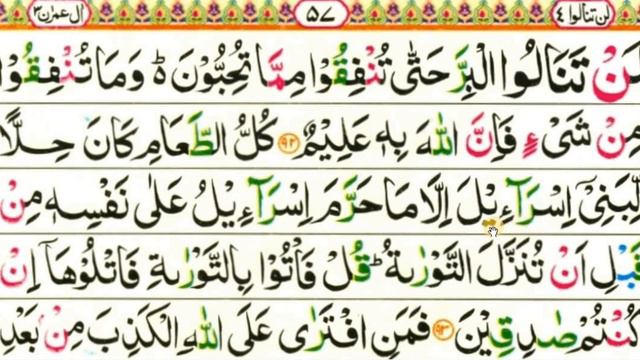 لن تنالوا ٤ ٥٧ ال عمرٰن ٣
لَنْ تَنَالُوا الْبِرَّ حَتّٰى تُنْفِقُوْا مِمَّا تُحِبُّوْنَ ؕ وَمَا تُنْفِقُوْا
مِنْ شَیْءٍ فَاِنَّ اللّٰهَ بِهٖ عَلِیْمٌ ﴿۹۲﴾ كُلُّ الطَّعَامِ كَانَ حِلًّا
لِّبَنِیْۤ اِسْرَآءِیْلَ اِلَّا مَا حَرَّمَ اِسْرَآءِیْلُ عَلٰى نَفْسِهٖ مِنْ
قَبْلِ اَنْ تُنَزَّلَ التَّوْرٰىةُ ؕ قُلْ فَاْتُوْا بِالتَّوْرٰىةِ فَاتْلُوْهَاۤ اِنْ
كُنْتُمْ صٰدِقِیْنَ ﴿۹۳﴾ فَمَنِ افْتَرٰى عَلَى اللّٰهِ الْكَذِبَ مِنْۢ بَعْدِ